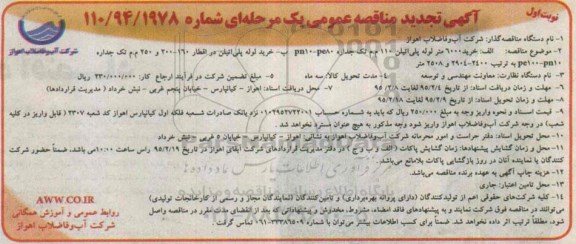 نوبت اول
آگهی تجدید مناقصه عمومی یک مرحله‌ای شماره ۱۱۰/۹۴/۱۹۷۸
شرکت آب‌وفاضلاب اهواز
۱- نام دستگاه مناقصه‌گذار: شرکت آب‌وفاضلاب اهواز
۲- موضوع مناقصه: الف: خرید ۶۰۰۰ متر لوله پلی‌اتیلن ۱۱۰ م.م تک جداره pn10-pe80 ب- خرید لوله پلی‌اتیلن در اقطار ۱۶۰-۲۰۰ و ۲۵۰ م.م تک جداره
pe100-pn10 به ترتیب ۲۴۰۰-۲۹۰۴ و ۲۵۰۸ متر
۳- نام دستگاه نظارت: معاونت مهندسی و توسعه ۴- مدت تحویل کالا: سه ماه ۵- مبلغ تضمین شرکت در فرآیند ارجاع کار: ۲۳۰/۰۰۰/۰۰۰ ریال
۶- مهلت و زمان دریافت اسناد: از تاریخ ۹۵/۲/۴ لغایت ۹۵/۲/۸ ۷- محل دریافت اسناد: اهواز - کیانپارس - خیابان پنجم غربی - نبش خرداد (مدیریت قراردادها)
۸- مهلت و زمان تحویل اسناد: از تاریخ ۹۵/۲/۹ لغایت ۹۵/۲/۱۸
۹- قیمت اسناد و نحوه واریز وجه به مبلغ ۲۵۰/۰۰۰ ریال که باید به شماره حساب نزد بانک صادرات شعبه فلکه اول کیانپارس اهواز کد شعبه ۲۳۰۷ (قابل واریز در کلیه
شعب) در وجه شرکت آب‌وفاضلاب اهواز واریز شود وجه مذکور به هیچ عنوان مسترد نخواهد شد.
۱۰- محل تحویل اسناد: دفتر حراست و امور محرمانه شرکت آب‌وفاضلاب اهواز به نشانی اهواز - کیانپارس - خیابان ۵ غربی - نبش خرداد
۱۱- محل و زمان گشایش پیشنهادها: زمان گشایش پاکات (الف و ب و ج) در دفتر مدیریت قراردادهای شرکت آبفای اهواز در تاریخ ۹۵/۲/۱۹ راس ساعت ۱۰:۰۰ می‌باشد. ضمناً حضور شرکت
کنندگان یا نماینده آنان در روز بازگشایی پاکات بلامانع می‌باشد.
۱۲- هزینه چاپ آگهی به عهده برنده مناقصه می‌باشد.
۱۳- محل تامین اعتبار: جاری
۱۴- کلیه شرکت‌های حقوقی اعم از تولیدکنندگان (دارای پروانه بهره‌برداری) و تامین‌کنندگان (نمایندگان مجاز و رسمی از کارخانجات تولیدی)
می‌توانند در مناقصه فوق شرکت نمایند و به پیشنهادهای فاقد امضاء، مشروط، مخدوش و پیشنهاداتی که بعد از انقضای مدت مقرر در مناقصه واصل
شود، مطلقاً ترتیب اثر داده نخواهد شد. ضمناً برای کسب اطلاعات بیشتر می‌توان با شماره تماس گرفت.
AWW.CO.IR
روابط عمومی و آموزش همگانی
شرکت آب‌وفاضلاب اهواز